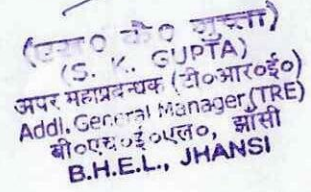 (एस० के० गुप्ता)
(S. K. GUPTA)
अपर महाप्रबन्धक (टी०आर०ई०)
Addl. General Manager (TRE)
बी०एच०ई०एल०, झांसी
B.H.E.L., JHANSI